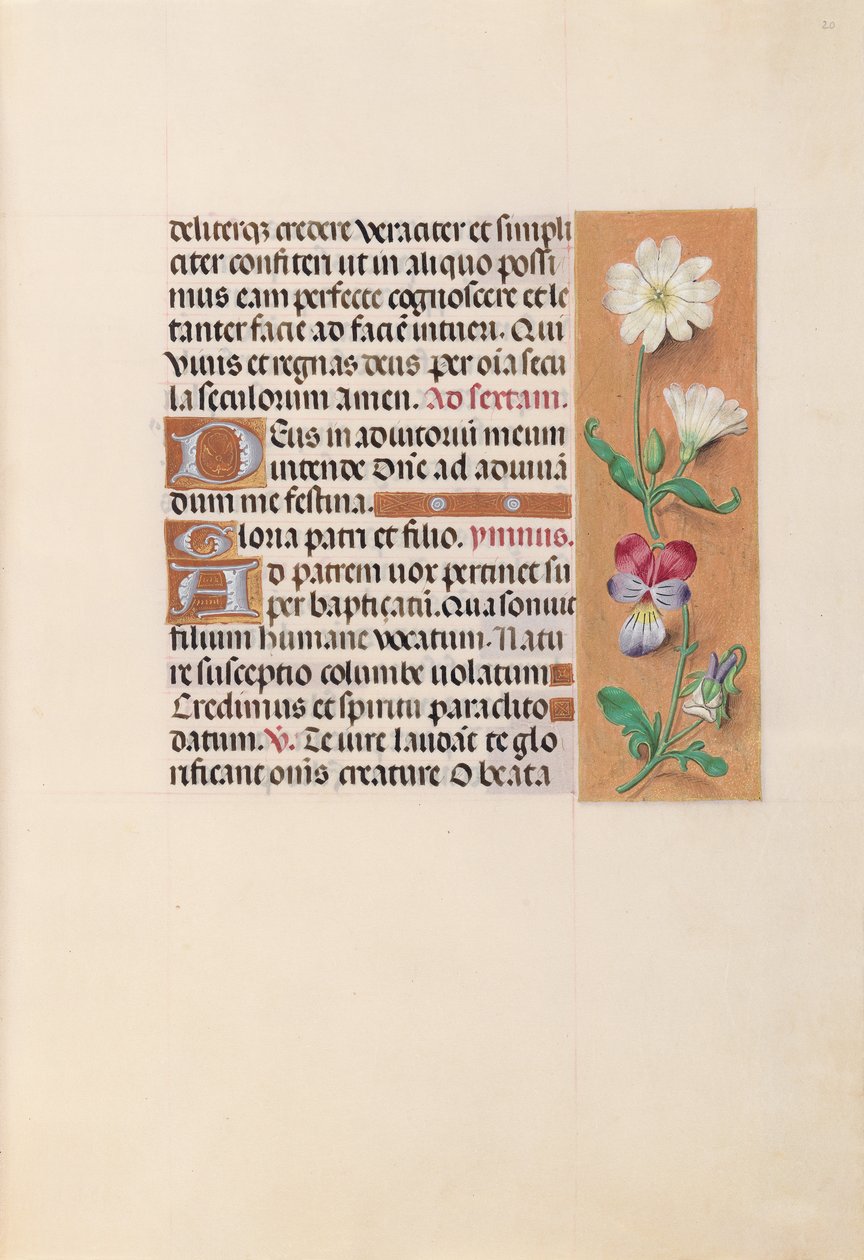 20
deliterqȝ credere veraciter et simpli
citer confiteri ut in aliquo possi
mus eam perfecte cognoscere et le
tanter facie ad faciē intueri. Qui
vivis et regnas deus per oīa secu
la seculorum amen. Ad sextam.
Deus in adiutoriū meum
intende Dn̄e ad adiuuā
dum me festina.
Gloria patri et filio. ymnus.
Ad patrem uox pertinet su
per baptiçatū. Qua sonuit
filium humane vocatum. Natu
re susceptio columbe uolatum
Credimus et spiritu paraclito
datum. V̄. Te iure laudāt te glo
rificant om̄s creature O beata